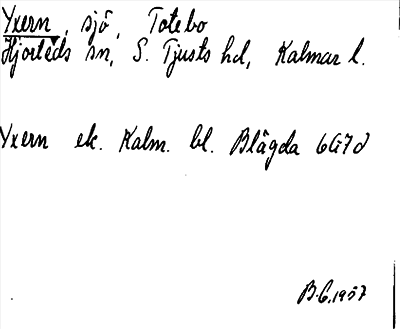 Yxern, sjö, Totebo
Hjorteds sn, S. Tjusts hd, Kalmar l.
Yxern ek. Kalm. bl. Blågda 6G7d
B.G.1957